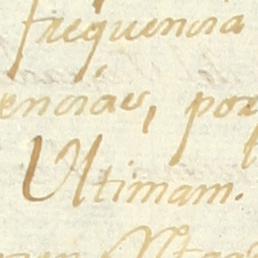 frequencia
encias, por
Ultimam.